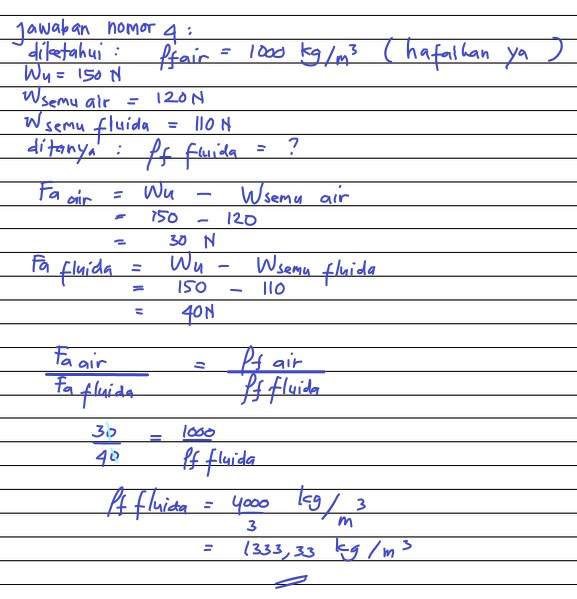 Jawaban nomor 4 :
diketahui : ρf air = 1000 kg/m³ ( hafalkan ya )
Wu = 150 N
Wsemu air = 120 N
Wsemu fluida = 110 N
ditanya : ρf fluida = ?
Fa air = Wu - Wsemu air
= 150 - 120
= 30 N
Fa fluida = Wu - Wsemu fluida
= 150 - 110
= 40N
Fa air / Fa fluida = ρf air / ρf fluida
30/40 = 1000 / ρf fluida
ρf fluida = 4000/3 kg/m³
= 1333,33 kg/m³